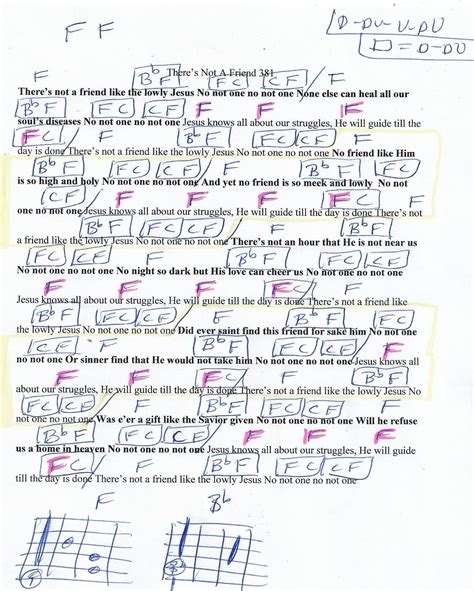 F F
D-DU-U-DU
▭ = D-DU
F B♭ F FC CF F
There's Not A Friend 381
There's not a friend like the lowly Jesus No not one no not one None else can heal all our
B♭ F FC CF F F F
soul's diseases No not one no not one Jesus knows all about our struggles, He will guide till the
FC F B♭ F FC CF F
day is done There's not a friend like the lowly Jesus No not one no not one No friend like Him
B♭ F FC CF F B♭ F FC
is so high and holy No not one no not ong And yet no friend is so meek and lowly No not
CF F F F FC F
one no not one Jesus knows all about our struggles, He will guide till the day is done There's not
B♭ F FC CF F B♭ F
a friend like the lowly Jesus No not one no not one There's not an hour that He is not near us
FC CF F B♭ F FC CF
No not one no not one No night so dark but His love can cheer us No not one no not one
F F F FC F
Jesus knows all about our struggles, He will guide till the day is done There's not a friend like
B♭ F FC CF F B♭ F FC
the lowly Jesus No not one no not one Did ever saint find this friend forsake him No not one
CF F B♭ F FC CF F
no not one Or sinner find that He would not take him No not one no not one Jesus knows all
F F FC F B♭ F
about our struggles, He will guide till the day is done There's not a friend like the lowly Jesus No
FC CF F B♭ F FC CF F
not one no not one Was e'er a gift like the Savior given No not one no not one Will he refuse
B♭ F FC CF F F F
us a home in heaven No not one no not one Jesus knows all about our struggles, He will guide
FC F B♭ F FC CF
till the day is done There's not a friend like the lowly Jesus No not one no not one
F B♭